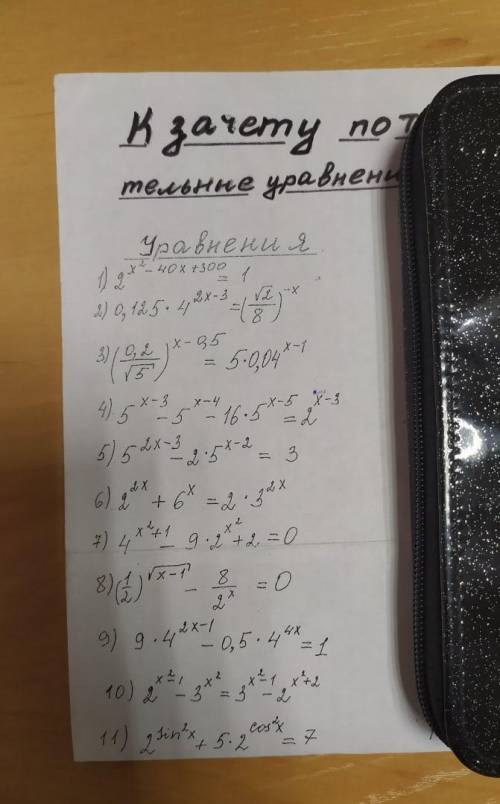 К зачету по
тельные уравнени
Уравнения.
1) 2^(x²-40x+300) = 1
2) 0,125·4^(2x-3) = (√2/8)^(-x)
3) (0,2/√5)^(x-0,5) = 5·0,04^(x-1)
4) 5^(x-3) - 5^(x-4) - 16·5^(x-5) = 2^(x-3)
5) 5^(2x-3) - 2·5^(x-2) = 3
6) 2^(2x) + 6^x = 2·3^(2x)
7) 4^(x²+1) - 9·2^(x²) + 2 = 0
8) (1/2)^(√(x-1)) - 8/2^x = 0
9) 9·4^(2x-1) - 0,5·4^(4x) = 1
10) 2^(x²-1) - 3^(x²) = 3^(x²-1) - 2^(x²+2)
11) 2^(sin²x) + 5·2^(cos²x) = 7